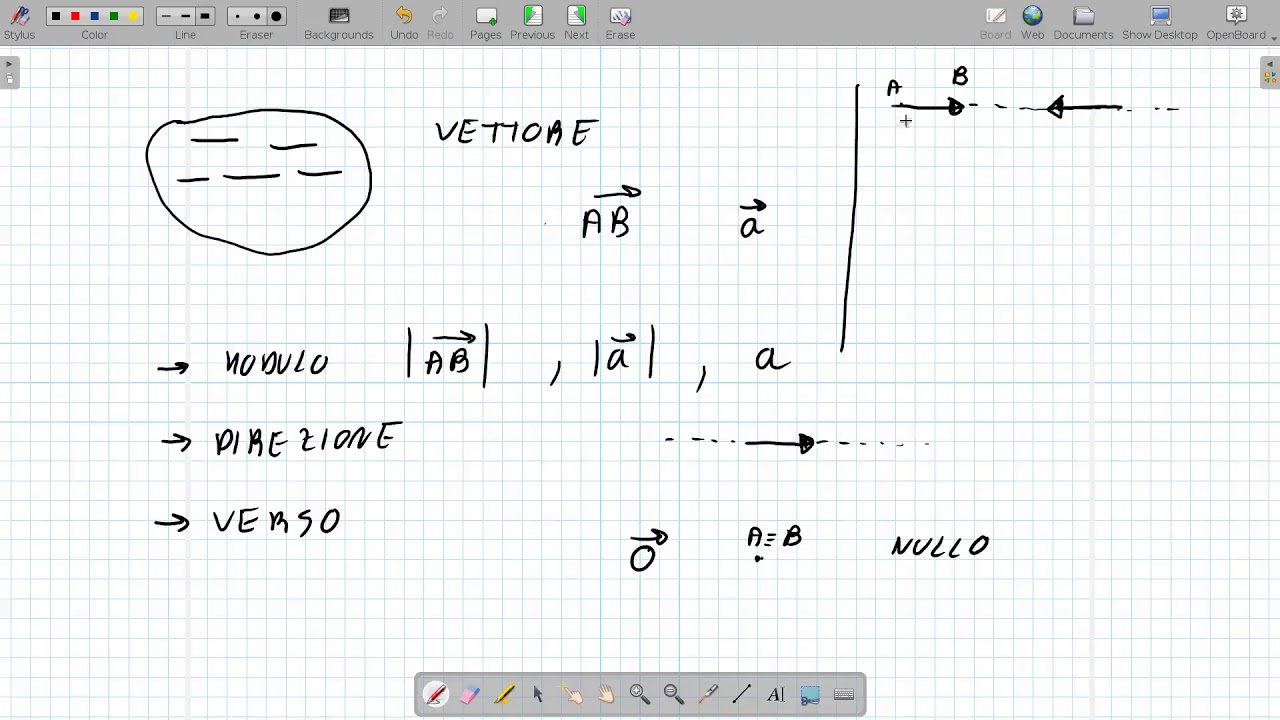 Stylus Color Line Eraser Backgrounds Undo Redo Pages Previous Next Erase Board Web Documents Show Desktop OpenBoard
A B
VETTORE
AB a
→ MODULO |AB| , |a| , a
→ DIREZIONE
→ VERSO
O A≡B NULLO